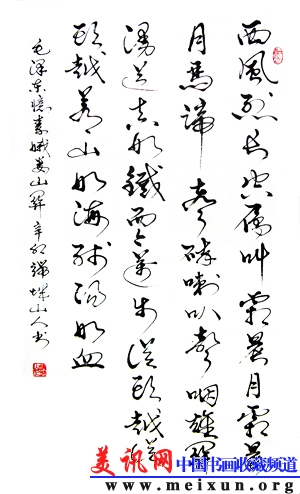 西風烈長空雁叫霜晨月霜晨
月馬蹄聲碎喇叭聲咽雄關
漫道真如鐵而今邁步從頭越從
頭越蒼山如海殘陽如血
毛澤東憶秦娥婁山關辛卯山人书
美讯网 中国书画收藏频道
www.meixun.org